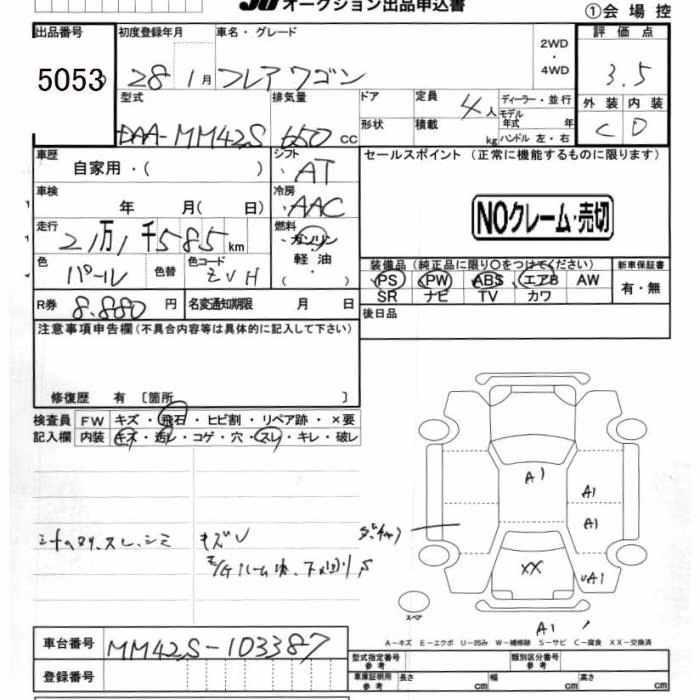 オークション出品申込書
①会場控
出品番号 初度登録年月 車名・グレード 2WD・4WD 評価点
5053 28 1月 フレアワゴン 3.5
型式 排気量 ドア 定員 4人 ディーラー・並行 外装 内装
DAA-MM42S 650cc 形状 積載 kg モデル年式 年 C D
ハンドル 左・右
車歴 自家用・( ) シフト AT セールスポイント (正常に機能するものに限ります)
車検 年 月( 日) 冷房 AAC
NOクレーム・売切
走行 21万1千585km 燃料 ガソリン・軽油・( )
色 パール 色替 色コード ZVH
装備品 (純正品に限り〇をつけてください) 新車保証書
PS PW ABS エアB AW 有・無
SR ナビ TV カワ
R券 8.880円 名変通知期限 月 日
後日品
注意事項申告欄(不具合内容等は具体的に記入して下さい)
修復歴 有 〔箇所 〕
検査員 FW キズ・飛石・ヒビ割・リペア跡・×要
記入欄 内装 キズ・汚レ・コゲ・穴・スレ・キレ・破レ
A1
A1
A1
シートヘタリ、スレ、シミ キズV
XX
A1
スペア
A1
A-キズ E-エクボ U-凹み W-補修跡 S-サビ C-腐食 XX-交換済
車台番号 MM42S-103387
型式指定番号 参考 類別区分番号 参考
登録番号
車庫証明用 参考 長さ cm 幅 cm 高さ cm